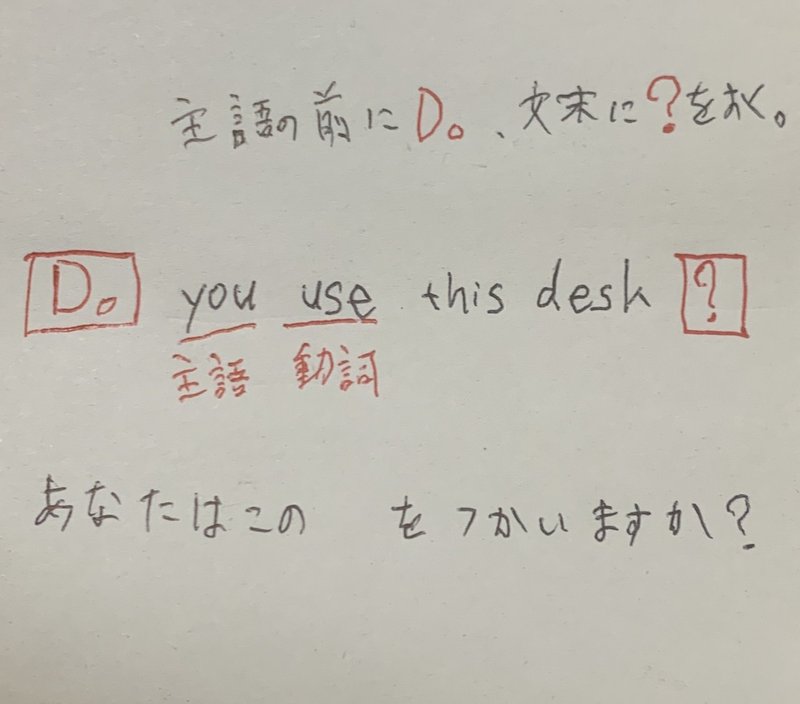 主語の前にDo、文末に?をおく。
Do you use this desk ?
主語 動詞
あなたはこの を つかいますか?